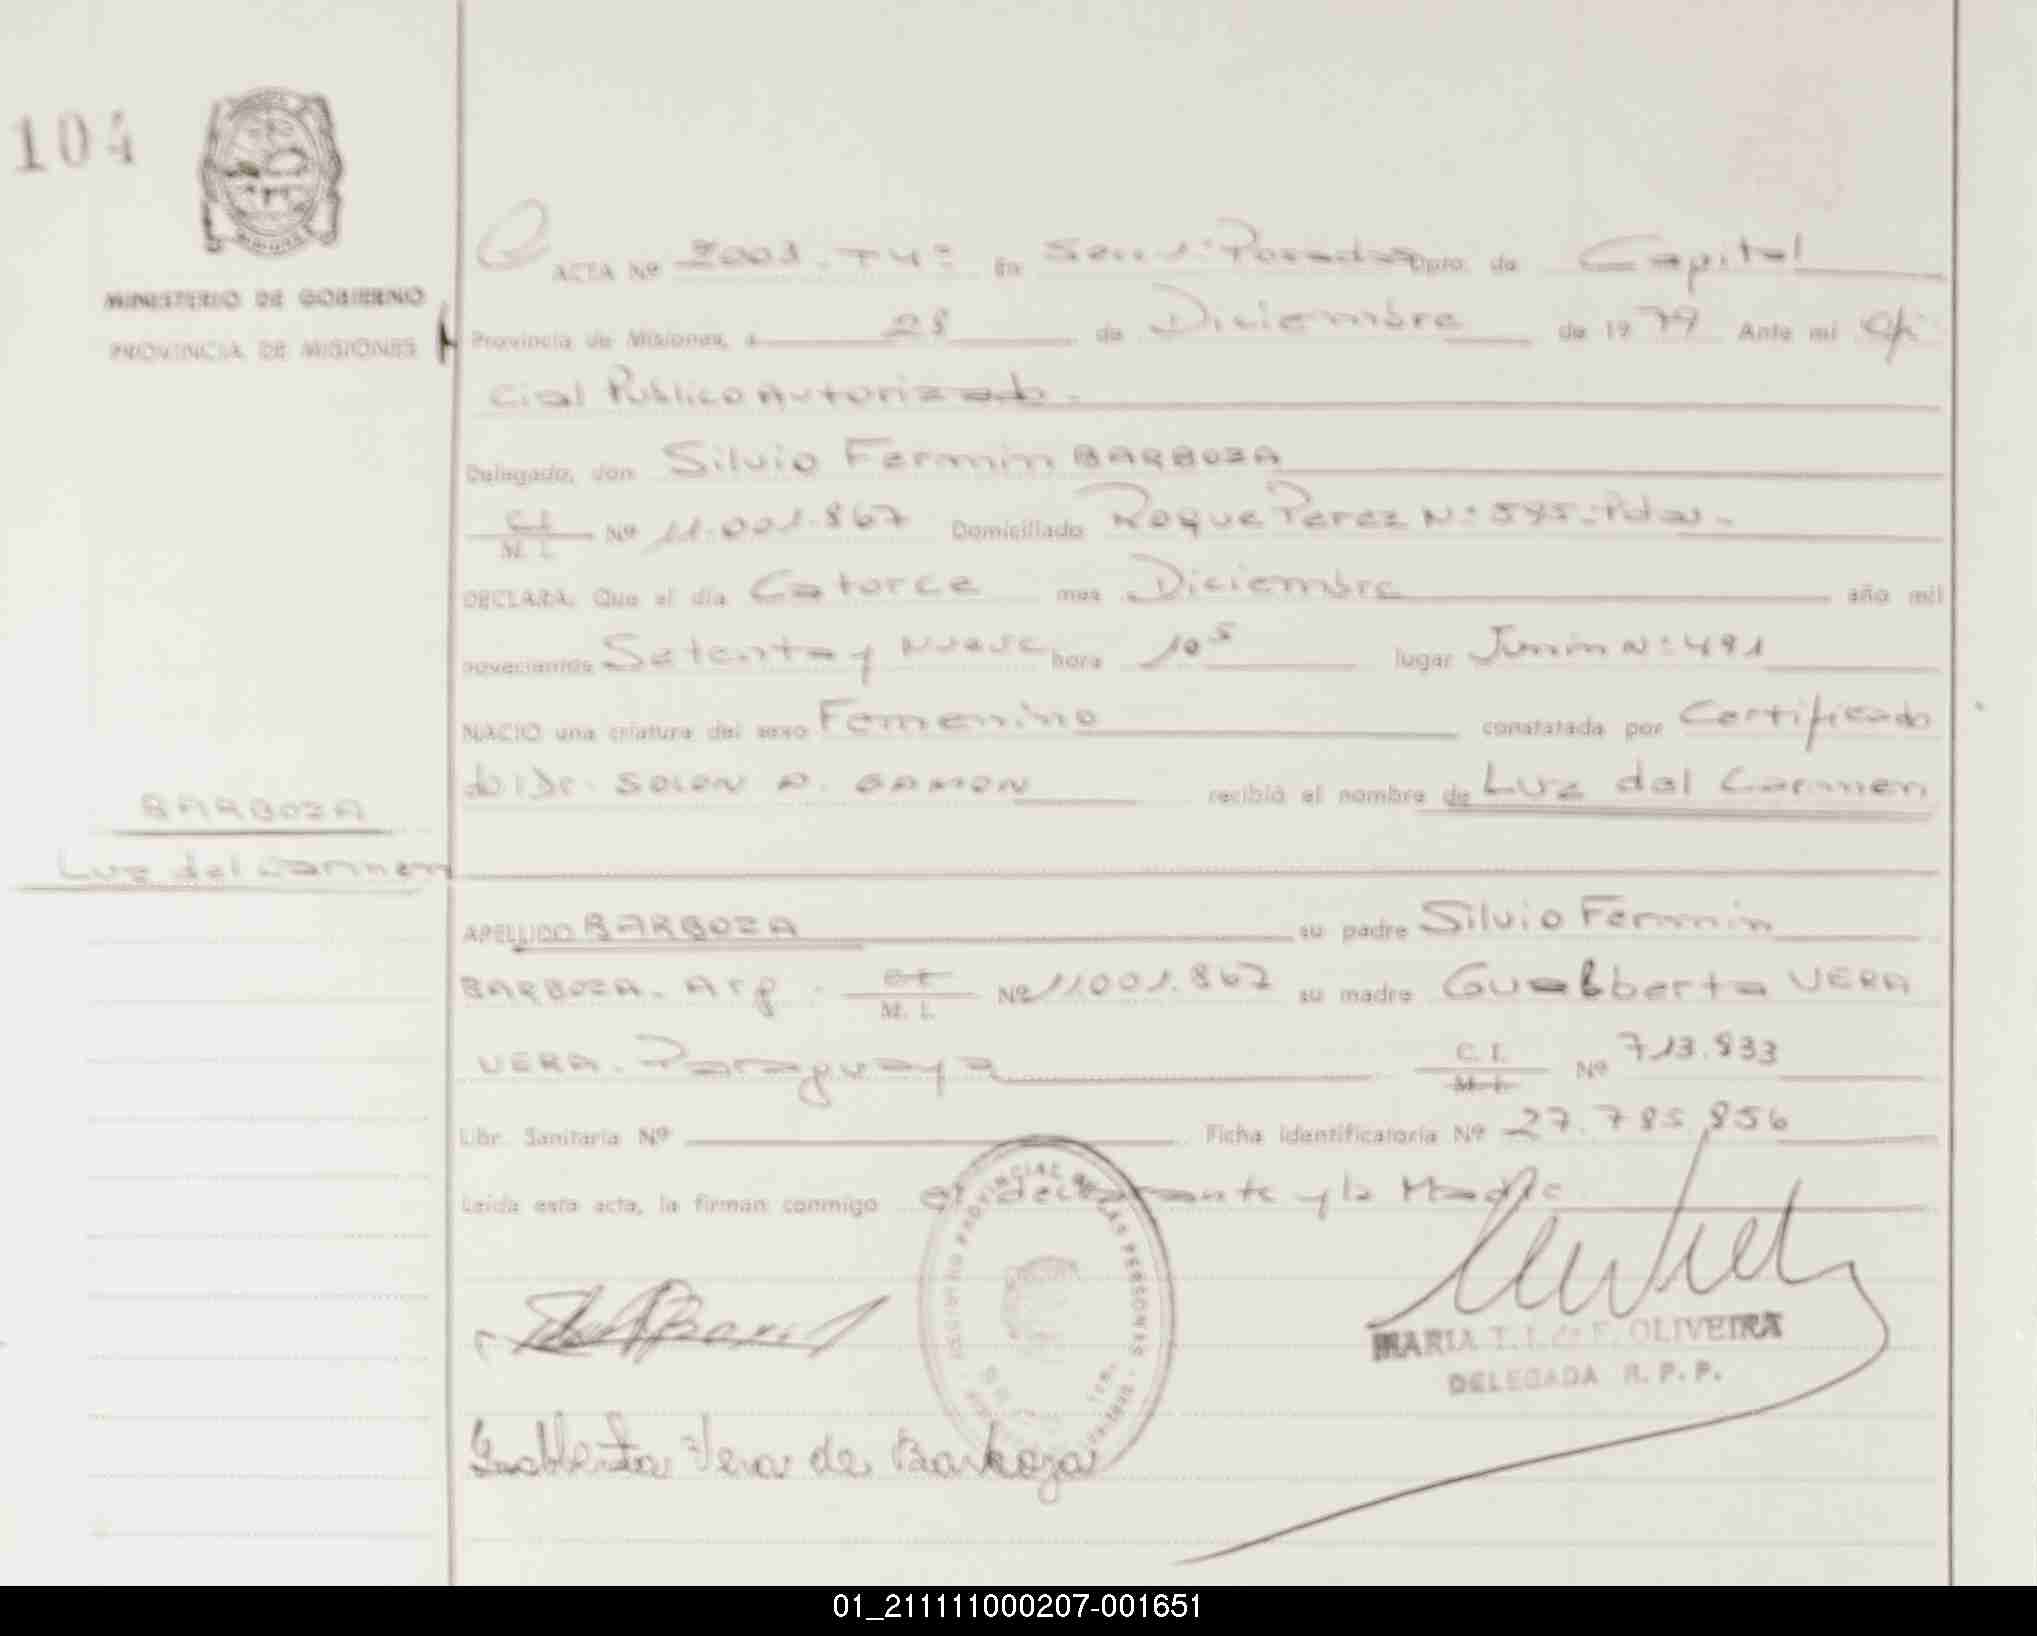 104
MINISTERIO DE GOBIERNO
PROVINCIA DE MISIONES
ACTA Nº 2001. Tº 4º En Secc. 1ª Posadas Dpto. de Capital
Provincia de Misiones, a 28 de Diciembre de 1979 Ante mi Ofi
cial Público Autorizado.
Delegado, don Silvio Fermin BARBOZA
C. I. M. I. Nº 11.001.867 Domiciliado Roque Perez Nº 595. Pdas.
DECLARA: Que el día Catorce mes Diciembre año mil
novecientos Setenta y Nueve hora 10 5 lugar Junin Nº 491
NACIO una criatura del sexo Femenino constatada por Certificado
del Dr. SOLON A. GAMON recibió el nombre de Luz del Carmen
BARBOZA
Luz del Carmen
APELLIDO BARBOZA su padre Silvio Fermin
BARBOZA. Arg. C. I. M. I. Nº 11.001.867 su madre Gualberta VERA
VERA. Paraguaya C. I. M. I. Nº 713.833
Libr. Sanitaria Nº Ficha identificatoria Nº 27.785.856
Leída esta acta, la firman conmigo el declarante y la Madre
REGISTRO PROVINCIAL DE LAS PERSONAS
MARIA T. I. de F. OLIVEIRA
DELEGADA R. P. P.
Gualberta Vera de Barboza
01_211111000207-001651